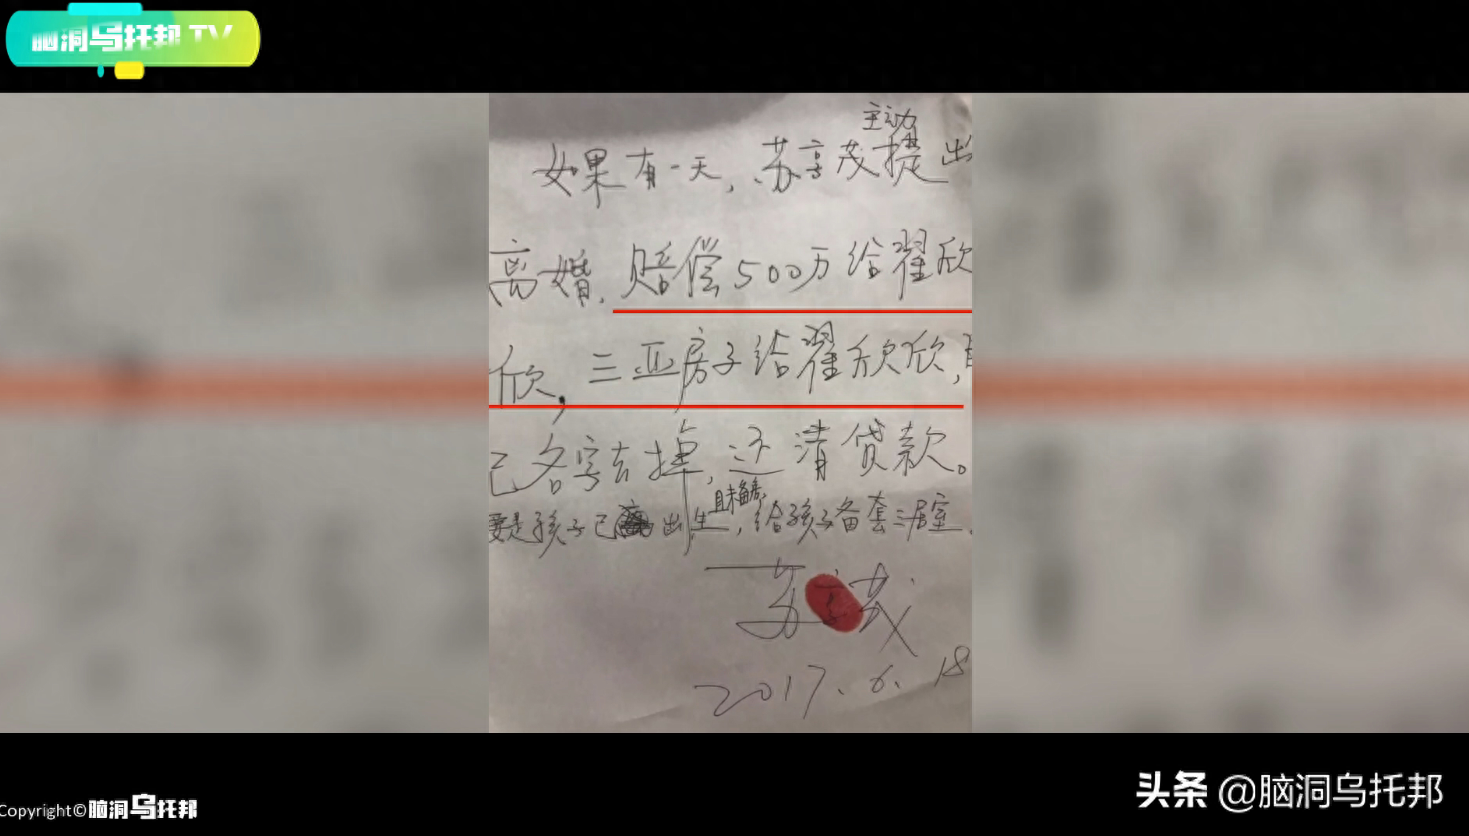 脑洞乌托邦 TV
主动
如果有一天,苏享茂提出
离婚,赔偿500万给翟欣
欣,三亚房子给翟欣欣,
己名字去掉,还清贷款。
且未备房,
要是孩子已出生,给孩子备套三居室.
苏享茂
2017.6.18
头条 @脑洞乌托邦
Copyright©脑洞乌托邦